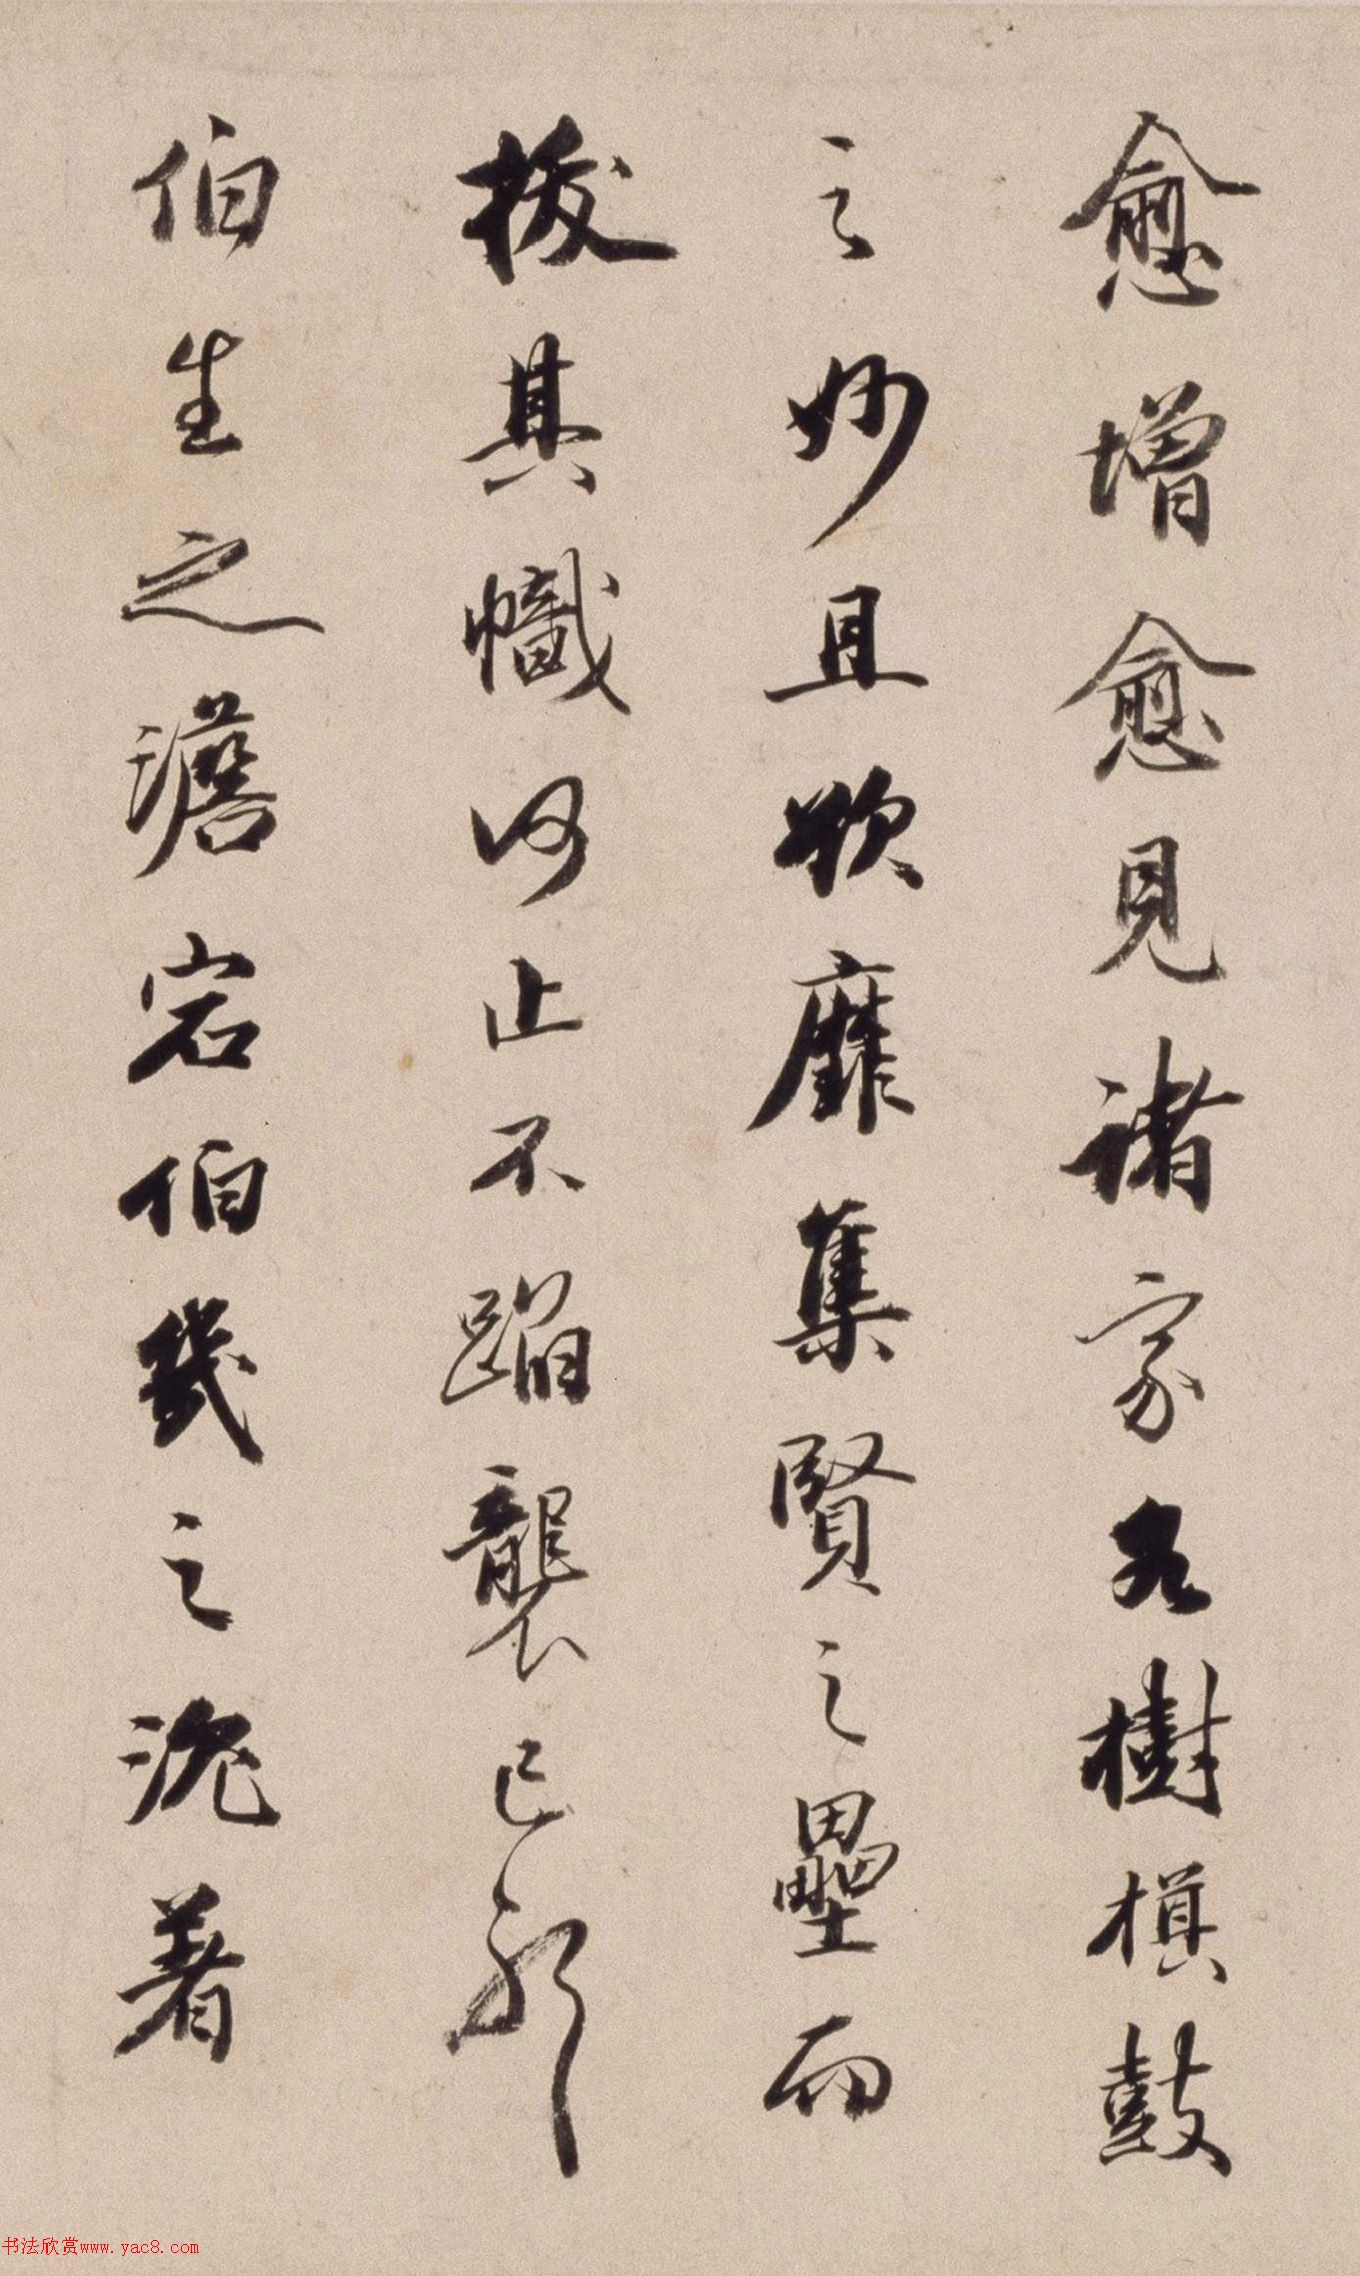 愈增愈愈見諸家各樹槙鼓
之妙且欲靡集賢之壘而
拔其幟何止不蹈襲已耶
伯生之澹宕伯幾之沈著
书法欣赏www.yac8.com